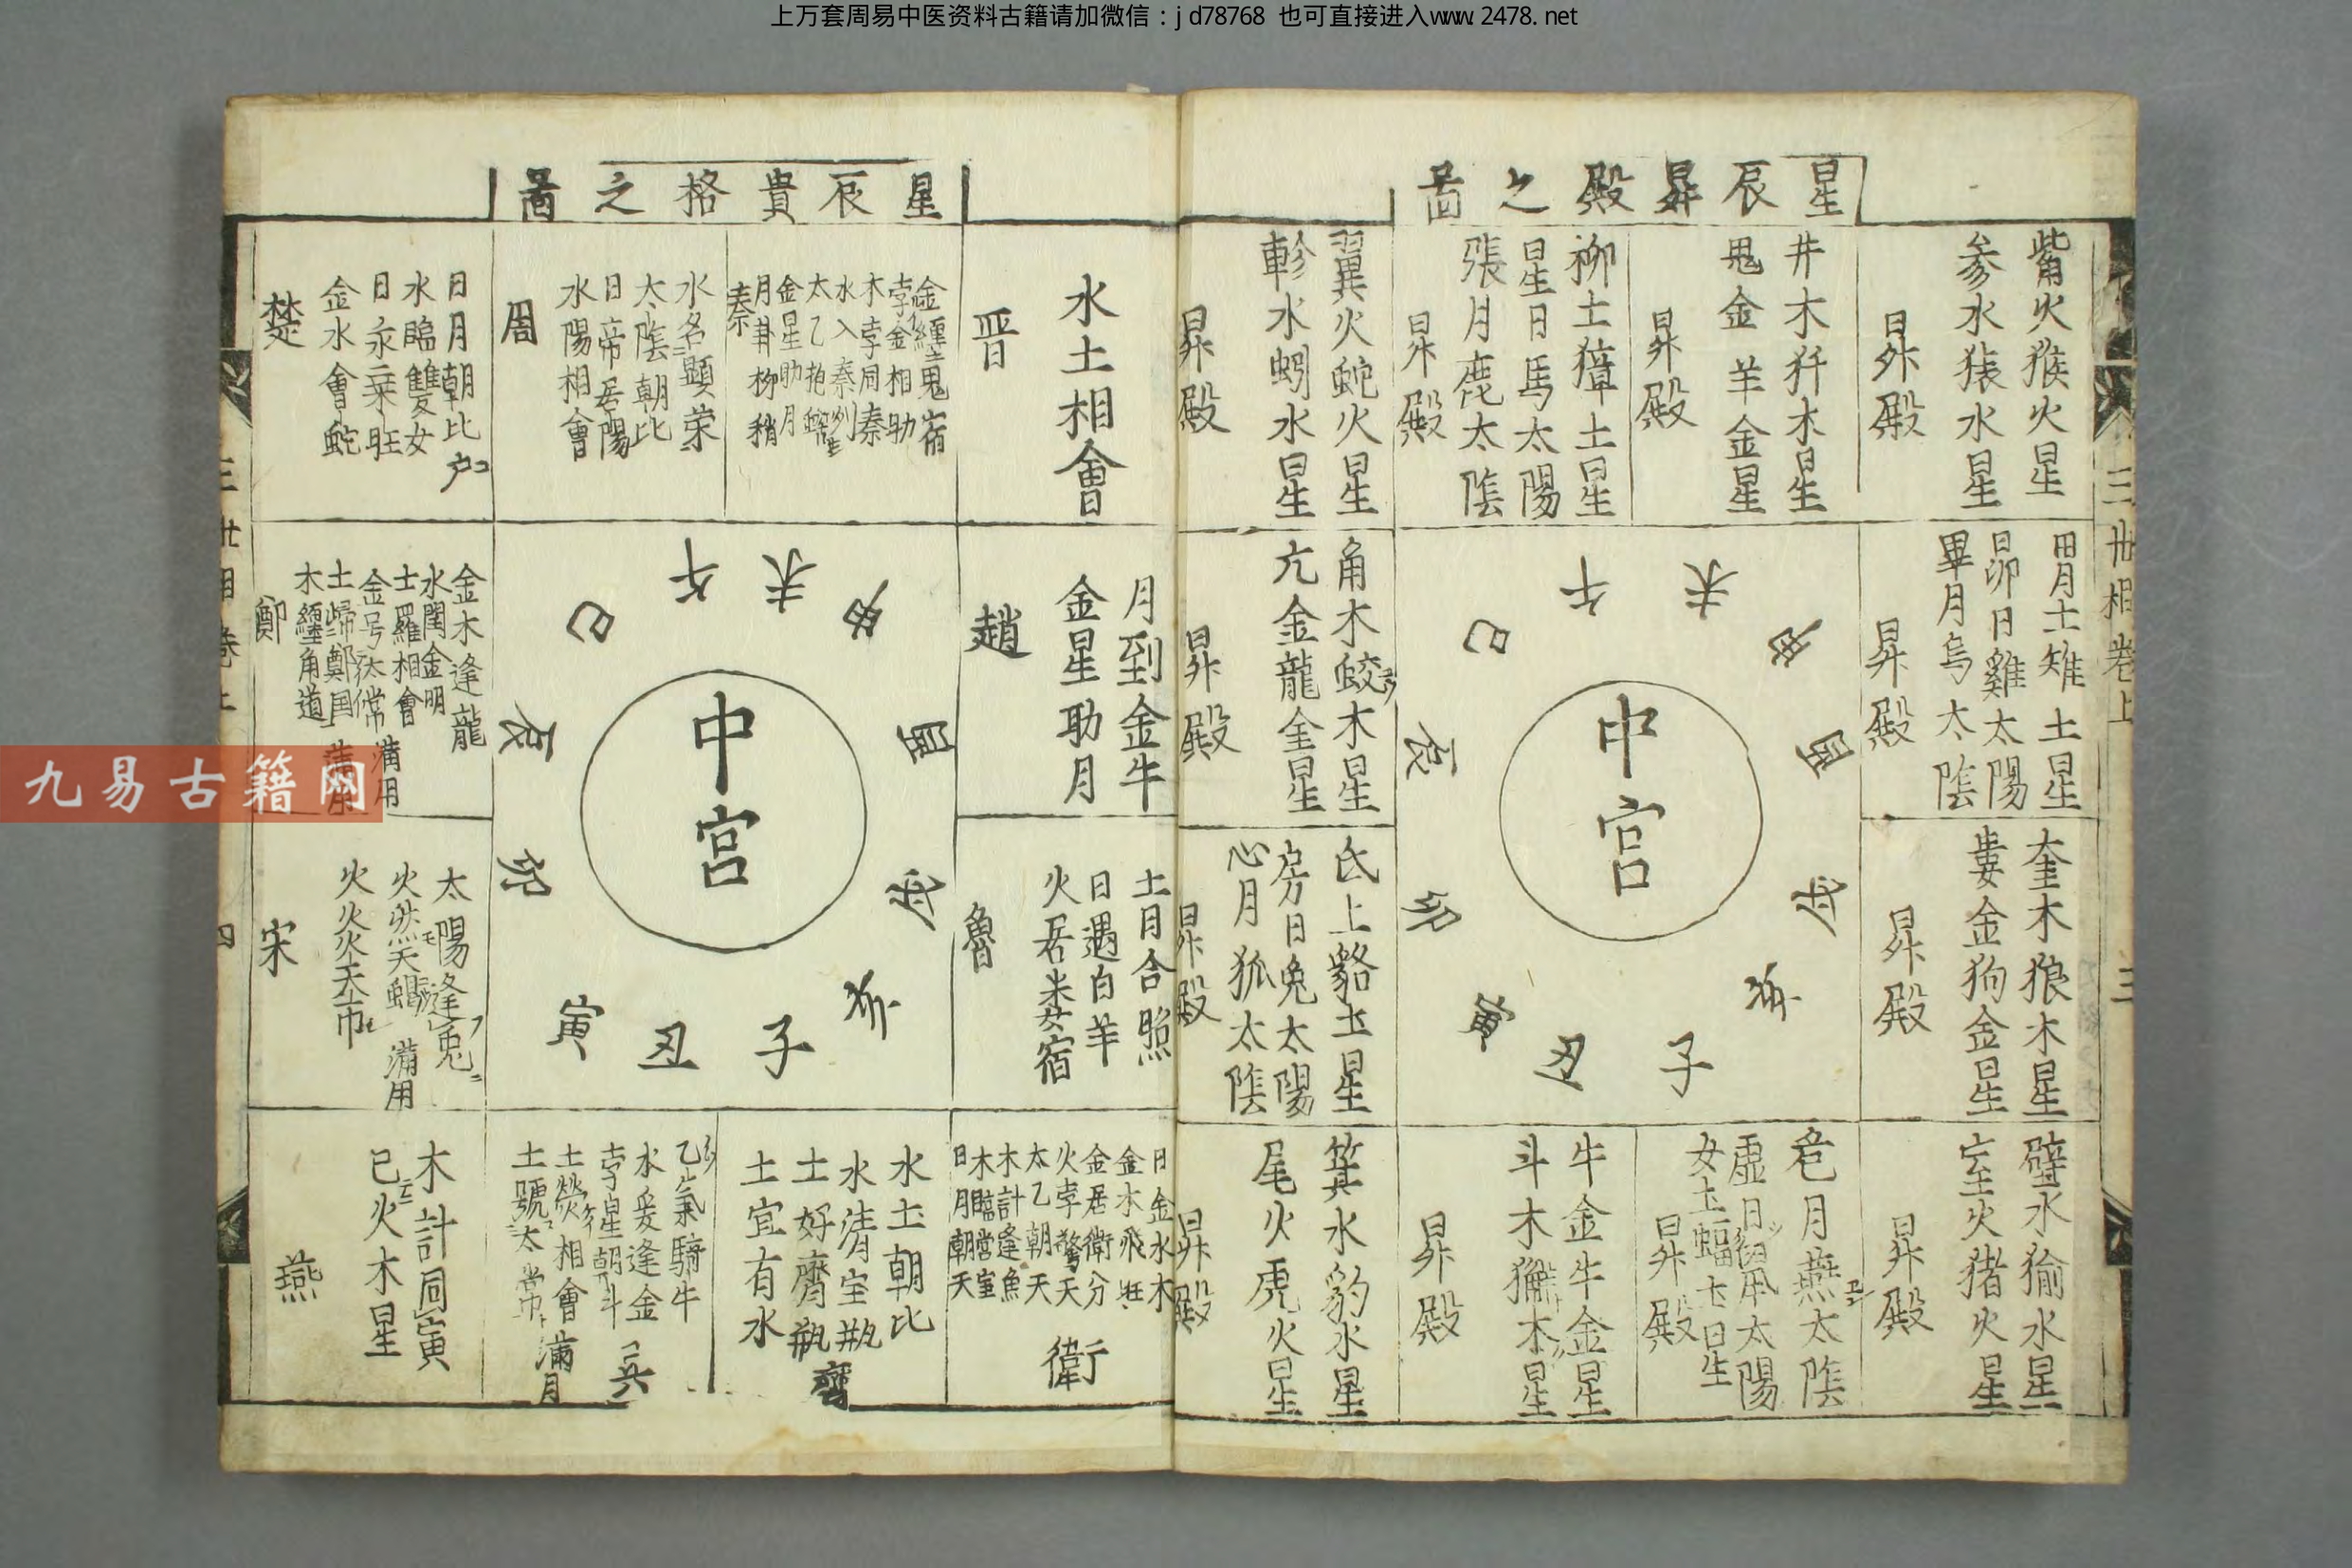 上万套周易中医资料古籍请加微信：jd78768 也可直接进入www.2478.net
星辰昇殿之啚
觜火猴火星
参水猿水星
昇殿
井木犴木星
鬼金羊金星
昇殿
柳土獐土星
星日馬太陽
張月鹿太陰
昇殿
翼火蛇火星
軫水蚓水星
昇殿
胃土雉土星
昴日雞太陽
畢月烏太陰
昇殿
奎木狼木星
婁金狗金星
昇殿
壁水㺄水星
室火猪火星
昇殿
危月燕太陰
虚日鼠太陽
女土蝠土星
昇殿
牛金牛金星
斗木獬木星
昇殿
箕水豹水星
尾火虎火星
昇殿
氐土貉土星
房日兔太陽
心月狐太陰
昇殿
角木蛟木星
亢金龍金星
昇殿
中宮
子
丑
寅
卯
辰
巳
午
未
申
酉
戌
亥
三卅相卷上
三
星辰貴格之啚
水土相會
晋
金纏鬼宿
孛金相助
木孛同秦
水入秦州
太乙抱蟹
金星助月
月卦柳稍
秦
水名顕荣
太陰朝比
日帝居陽
水陽相會
周
日月朝比戶
水臨雙女
日永乗旺
金水會蛇
楚
月到金牛
金星助月
趙
土月合照
日遇白羊
火居娄宿
魯
日金水木
金水飛旺
金居衛分
火孛驚天
太乙朝天
木計逢魚
木臨営室
日月朝天
衛
水土朝比
水清宝瓶
土好齊瓶
土宜有水
齊
乙氣騎牛
水爰逢金
孛星朝斗
土熒相會
土號太常
滿月
兵
木計同寅
巳火木星
燕
太陽逢兎
火然天蝎 滿用
火炎天市
宋
金木逢龍
水閏金明
土羅相會
金号太常 满用
土歸鄭国 满用
木纏角道
鄭
中宮
子
丑
寅
卯
辰
巳
午
未
申
酉
戌
亥
四
九易古籍网